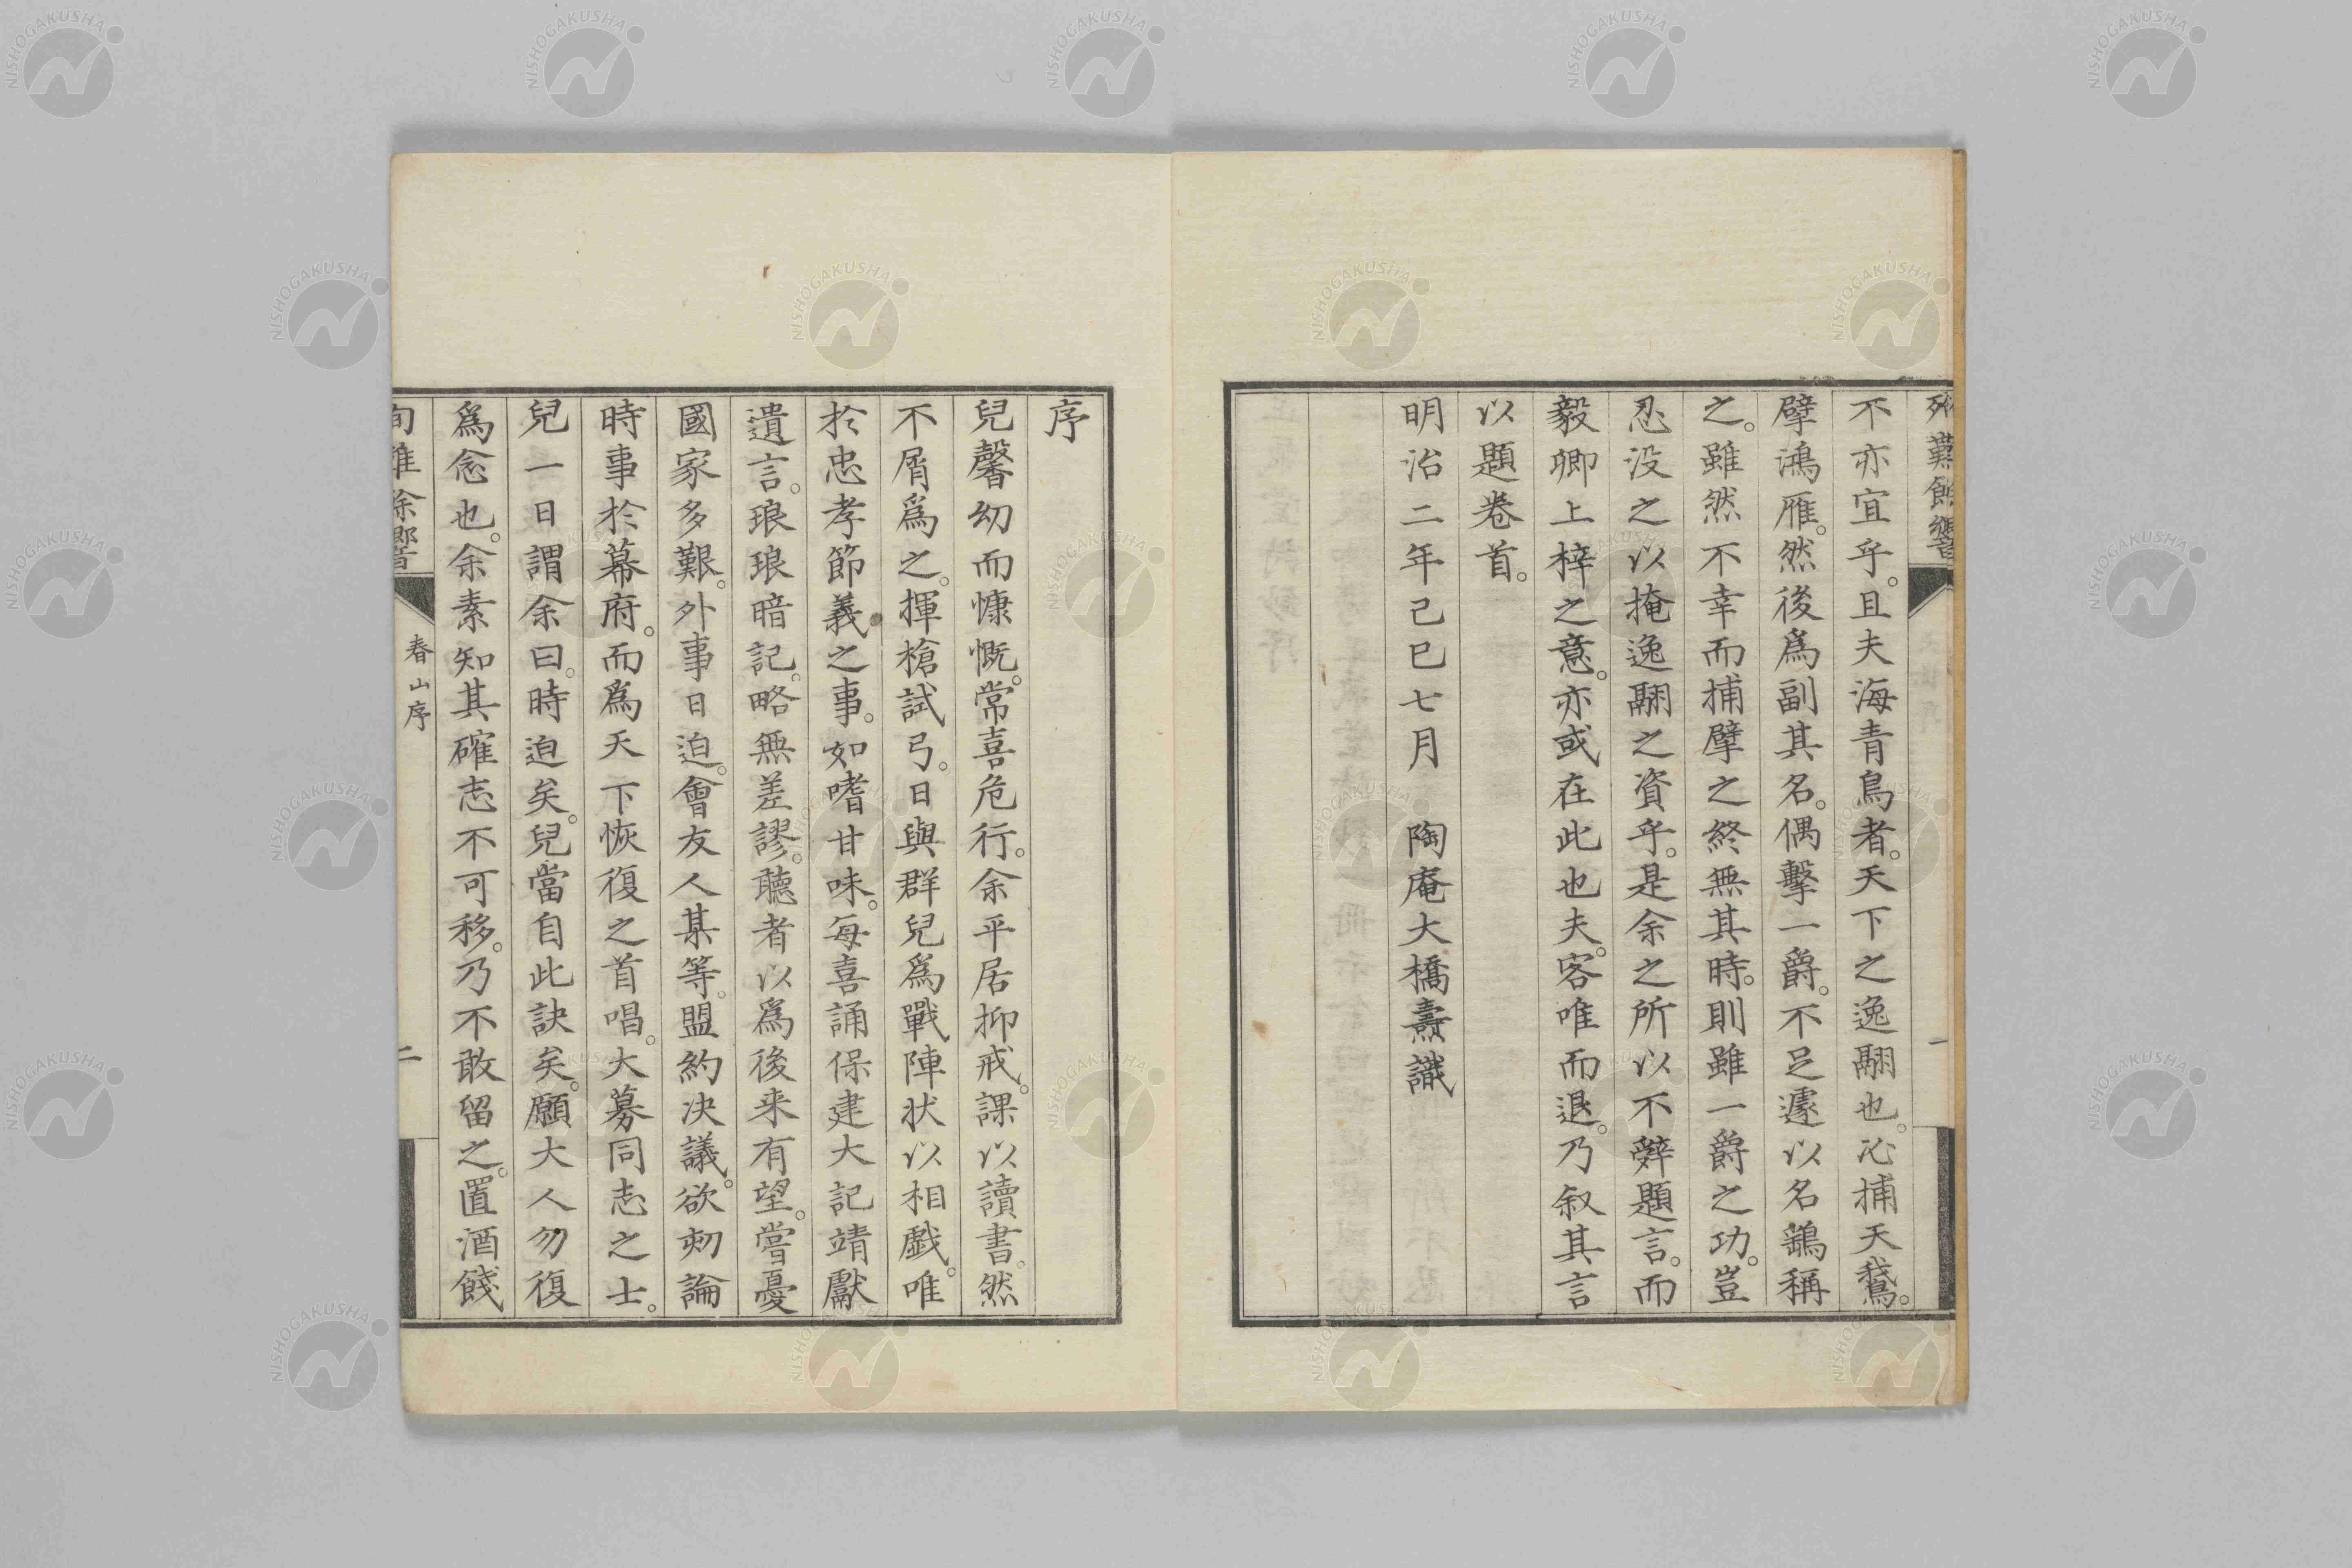 殉難餘響
一
不亦宜乎。且夫海青鳥者。天下之逸翮也。沁捕天鵝。
擘鴻雁。然後爲副其名。偶擊一爵。不足遽以名鷂稱
之。雖然不幸而捕擘之終無其時。則雖一爵之功。豈
忍没之以掩逸翮之資乎。是余之所以不辤題言。而
毅卿上梓之意。亦或在此也夫。客唯而退。乃叙其言
以題卷首。
明治二年己巳七月 陶庵大橋燾識
序
兒馨幼而慷慨。常喜危行。余平居抑戒。課以讀書。然
不屑爲之。揮槍試弓。日與群兒爲戰陣状以相戯。唯
於忠孝節義之事。如嗜甘味。每喜誦保建大記靖獻
遺言。琅琅暗記。略無差謬。聽者以爲後来有望。嘗憂
國家多艱。外事日迫。會友人某等。盟約决議。欲刼論
時事於幕府。而爲天下恢復之首唱。大募同志之士。
兒一日謂余曰。時迫矣。兒當自此訣矣。願大人勿復
爲念也。余素知其確志不可移。乃不敢留之。置酒餞
殉難餘響
春山序
二
NISHOGAKUSHA